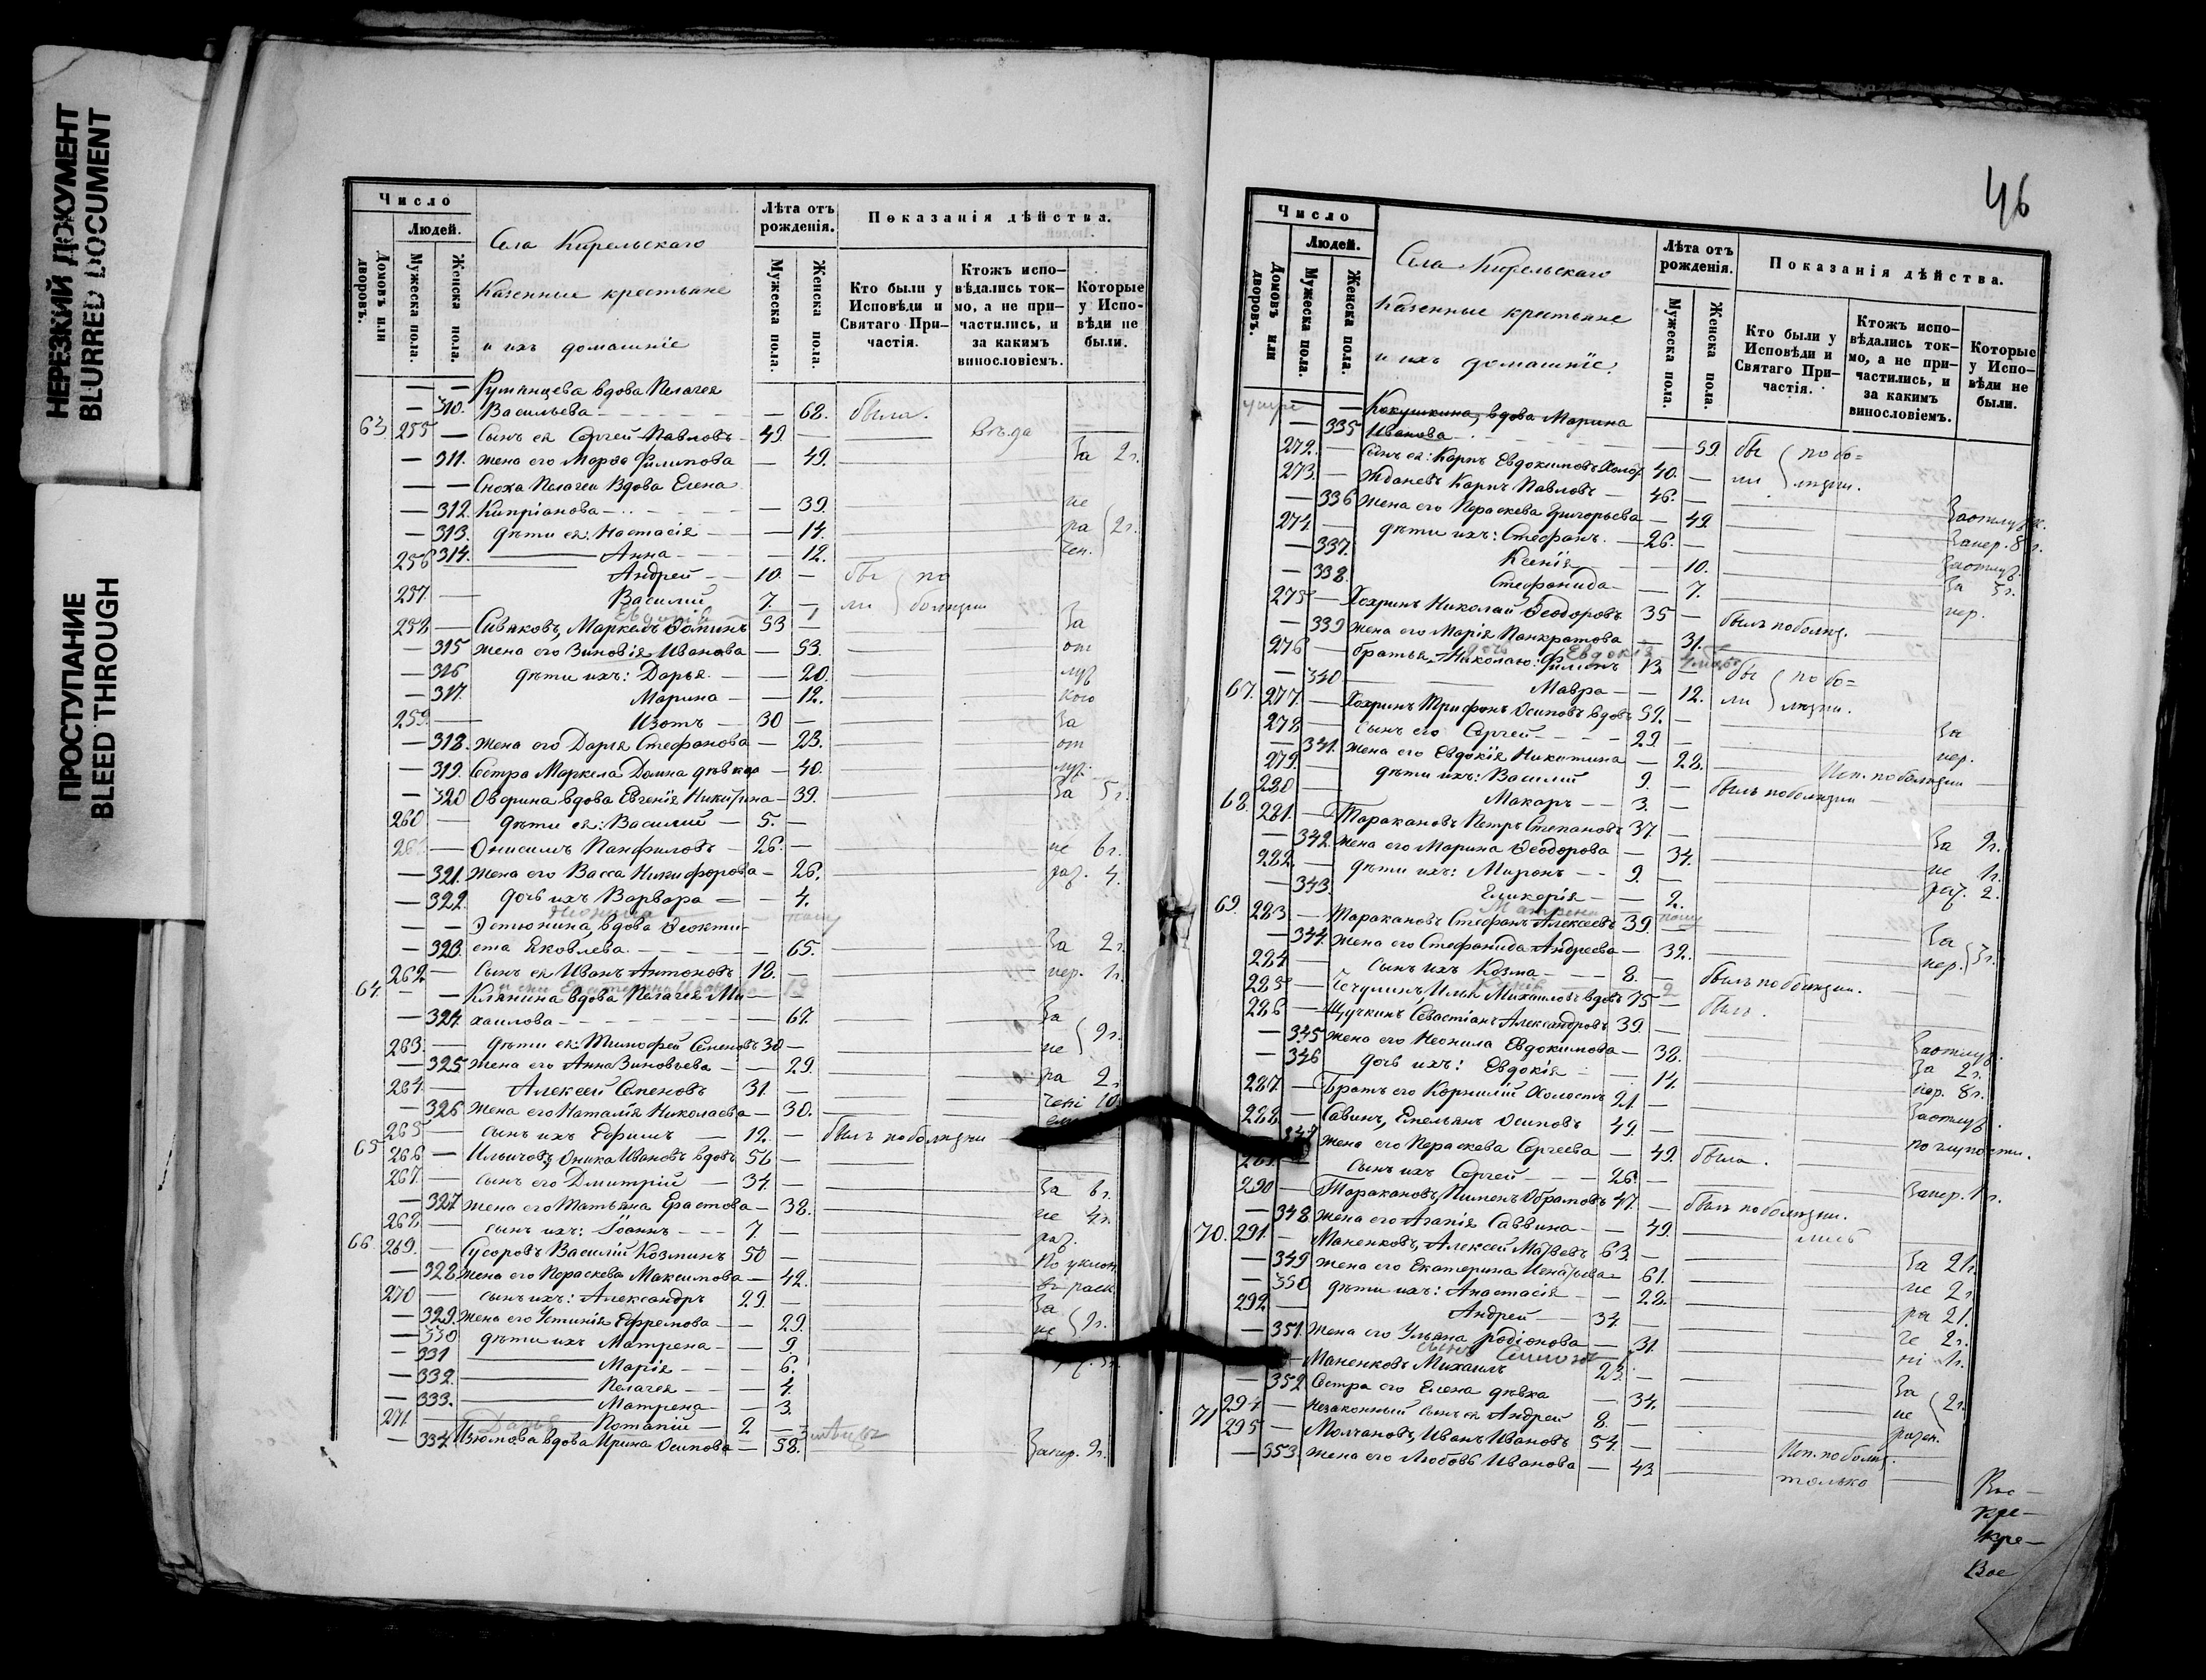 НЕРЕЗКИЙ ДОКУМЕНТ
BLURRED DOCUMENT
ПРОСТУПАНИЕ
BLEED THROUGH
Число
Людей.
Домовъ или дворовъ.
Мужеска пола.
Женска пола.
Села Кирельскаго
Казенные крестьяне
и ихъ домашніе
Лѣта отъ рожденія.
Мужеска пола.
Женска пола.
Показанія дѣйства.
Кто были у Исповѣди и Святаго Причастія.
Ктожъ исповѣдались токмо, а не причастились, и за какимъ винословіемъ.
Которые у Исповѣди не были.
— — Румянцева вдова Пелагея
— 310. Васильева — 68. была.
63 255 — Сынъ ея Сергей Павловъ 49. —
— 311. жена его Марѳа Филипова — 49. За 2 г.
— — Сноха Пелагеи Вдова Елена
— 312. Кипріанова — 39. не
— 313. дѣти ея: Настасія — 14. ра 2 г.
256 314. Анна — 12. чен.
Андрей 10. — бы по
257 — Василий 7. — ли болѣзни
Евдокія 1
258 — Сивяковъ, Маркелъ Ѳоминъ 53 — За
— 315 жена его Зиновія Иванова — 53. от
— 316 дѣти ихъ: Дарья — 20. луч
— 317. Марина — 12. кого
259. — Изотъ 30 — За
— 318. жена его Дарія Стефанова — 23. от
— 319. Сестра Маркела Домна дѣвка — 40. луч.
— 320 Оворина вдова Евгенія Никитина — 39. За 5 г.
260 — дѣти ея: Василий — 5. —
— Онисимъ Панфиловъ — 26. — не 6 г.
— 321. жена его Васса Никифорова — 26. раз. 4.
— 322. дочь ихъ Варвара — 4.
— — Устюнина, вдова Ѳеокти-
— 323. ста Яковлева — 65. За 2 г.
262 — Сынъ ея Иванъ Антоновъ 18. — нер. 1 г.
64. — — Клянина вдова Пелагея Ми-
— 324. хаилова — 67. За
263. — дѣти ея: Тимофей Семеновъ 30 — не 9 г.
— 325. жена его Анна Зиновьева — 29.
264. — Алексей Семеновъ 31. — ра 2
— 326 жена его Наталія Николаева — 30. чені 10
265 — сынъ ихъ Ефимъ — 12. — былъ по болѣзни
65 266 — Ильичовъ, Оника Ивановъ вдовъ 56 —
267. — сынъ его Дмитрій — 34. — За 6 г.
— 327 жена его Татьяна Ерастова — 38. не 4 г.
268. — сынъ ихъ: Іоаннъ 7. — раз.
66. 269. — Сусоровъ Василій Козминъ 50 — По уклон.
— 328 жена его Параскева Максимова — 42. въ раск.
270 — сынъ ихъ: Александръ 29. — За
— 329. жена его Устинія Ефремова — 29. не 9 г.
— 330 дѣти ихъ Матрена — 9.
— 331 Марія — 6.
— 332. Пелагея — 4.
— 333. Матрена — 3.
271. — Потапій — 2 — 3 мѣсяца
— 334. Изюмова вдова Ирина Осипова — 58. Занер. 9 г.
46
Число
Людей.
Домовъ или дворовъ.
Мужеска пола.
Женска пола.
Села Кирельскаго
Казенные крестьяне
и ихъ домашніе.
Лѣта отъ рожденія.
Мужеска пола.
Женска пола.
Показанія дѣйства.
Кто были у Исповѣди и Святаго Причастія.
Ктожъ исповѣдались токмо, а не причастились, и за какимъ винословіемъ.
Которые у Исповѣди не были.
— — Кокушкина, вдова Марина
— 335 Иванова — 59. бы по бо=
272. — Сынъ ея: Карпъ Евдокимовъ Холос. 40. — ли лѣзни.
273. — Ждановъ Карпъ Павловъ 46. —
— 336 жена его Параскева Григорьева — 49. За отлуч.
274. — дѣти ихъ: Стефанъ 26. — Занер. 8 г.
— 337. Ксенія — 10. За отлуч.
— 338. Стефанида — 7. За 3 г.
275 — Хохринъ Николай Ѳеодоровъ 35 — былъ по болѣз. нер.
— 339 жена его Марія Панкратова — 31.
дочь Евдокія
276 — братья Николаю: Филипъ 13. — бы по бо=
— 340 Мавра — 12. ли лѣзни.
67. 277. — Хохринъ Трифонъ Осиповъ вдовъ 59. —
278 — сынъ его Сергей 29 — За
— 341. жена его Евдокія Никитина — 28. нер.
279. — дѣти ихъ: Василий 9. — Исп. по болѣзни
280 — Макаръ — 3. — былъ по болѣзни
68. 281. — Таракановъ Петръ Степановъ 37. —
— 342. жена его Марина Ѳеодорова — 34. За 9 г.
282. — дѣти ихъ: Миронъ — 9. — не 1 г.
— 343. Гликерія — 2. раз. 2.
Матрена
69. 283. — Таракановъ Стефанъ Алексеевъ 39. —
— 344. жена его Стефанида Андреева — 32. За
284. — сынъ ихъ Козма — 8. — былъ по болѣзни. нер. 3 г.
285 — Чечулинъ, Илья Михаиловъ вдовъ 75 — былъ.
286 — Щучкинъ Севастіанъ Александровъ 39. —
— 345 жена его Неонила Евдокимова — 38. За отлуч.
— 346 дочь ихъ: Евдокія — 14. За 2 г.
287 — Братъ его Корнилій Холостъ 21. — нер. 8 г.
288. — Савинъ, Емельянъ Осиповъ 49. — За отлуч.
347 жена его Параскева Сергеева — 49. была. по глупости.
289. — сынъ ихъ Сергей — 26. —
290 — Таракановъ, Пименъ Абрамовъ 47. — былъ по болѣзни. Занер. 1 г.
— 348 жена его Агапія Саввина — 49.
70. 291. — Маненковъ, Алексей Матвѣевъ 63. —
— 349 жена его Екатерина Игнатьева — 61. За 21.
— 350 дѣти ихъ: Анастасія — 28. не 2 г
292 — Андрей — 34. — ра 21.
— 351. жена его Ульяна Родіонова — 31. че 2 г.
сынъ Симонъ
— Маненковъ Михаилъ 23. — ні 1 г.
— 352 Сестра его Елена дѣвка — 34. За
294 — незаконный сынъ ея Андрей 8. — не 2 г.
71 295 — Молчановъ, Иванъ Ивановъ 54. — разен.
— 353. жена его Любовь Иванова — 43. Исп. по болѣз.
только
Вос-
кре-
кре-
Вос